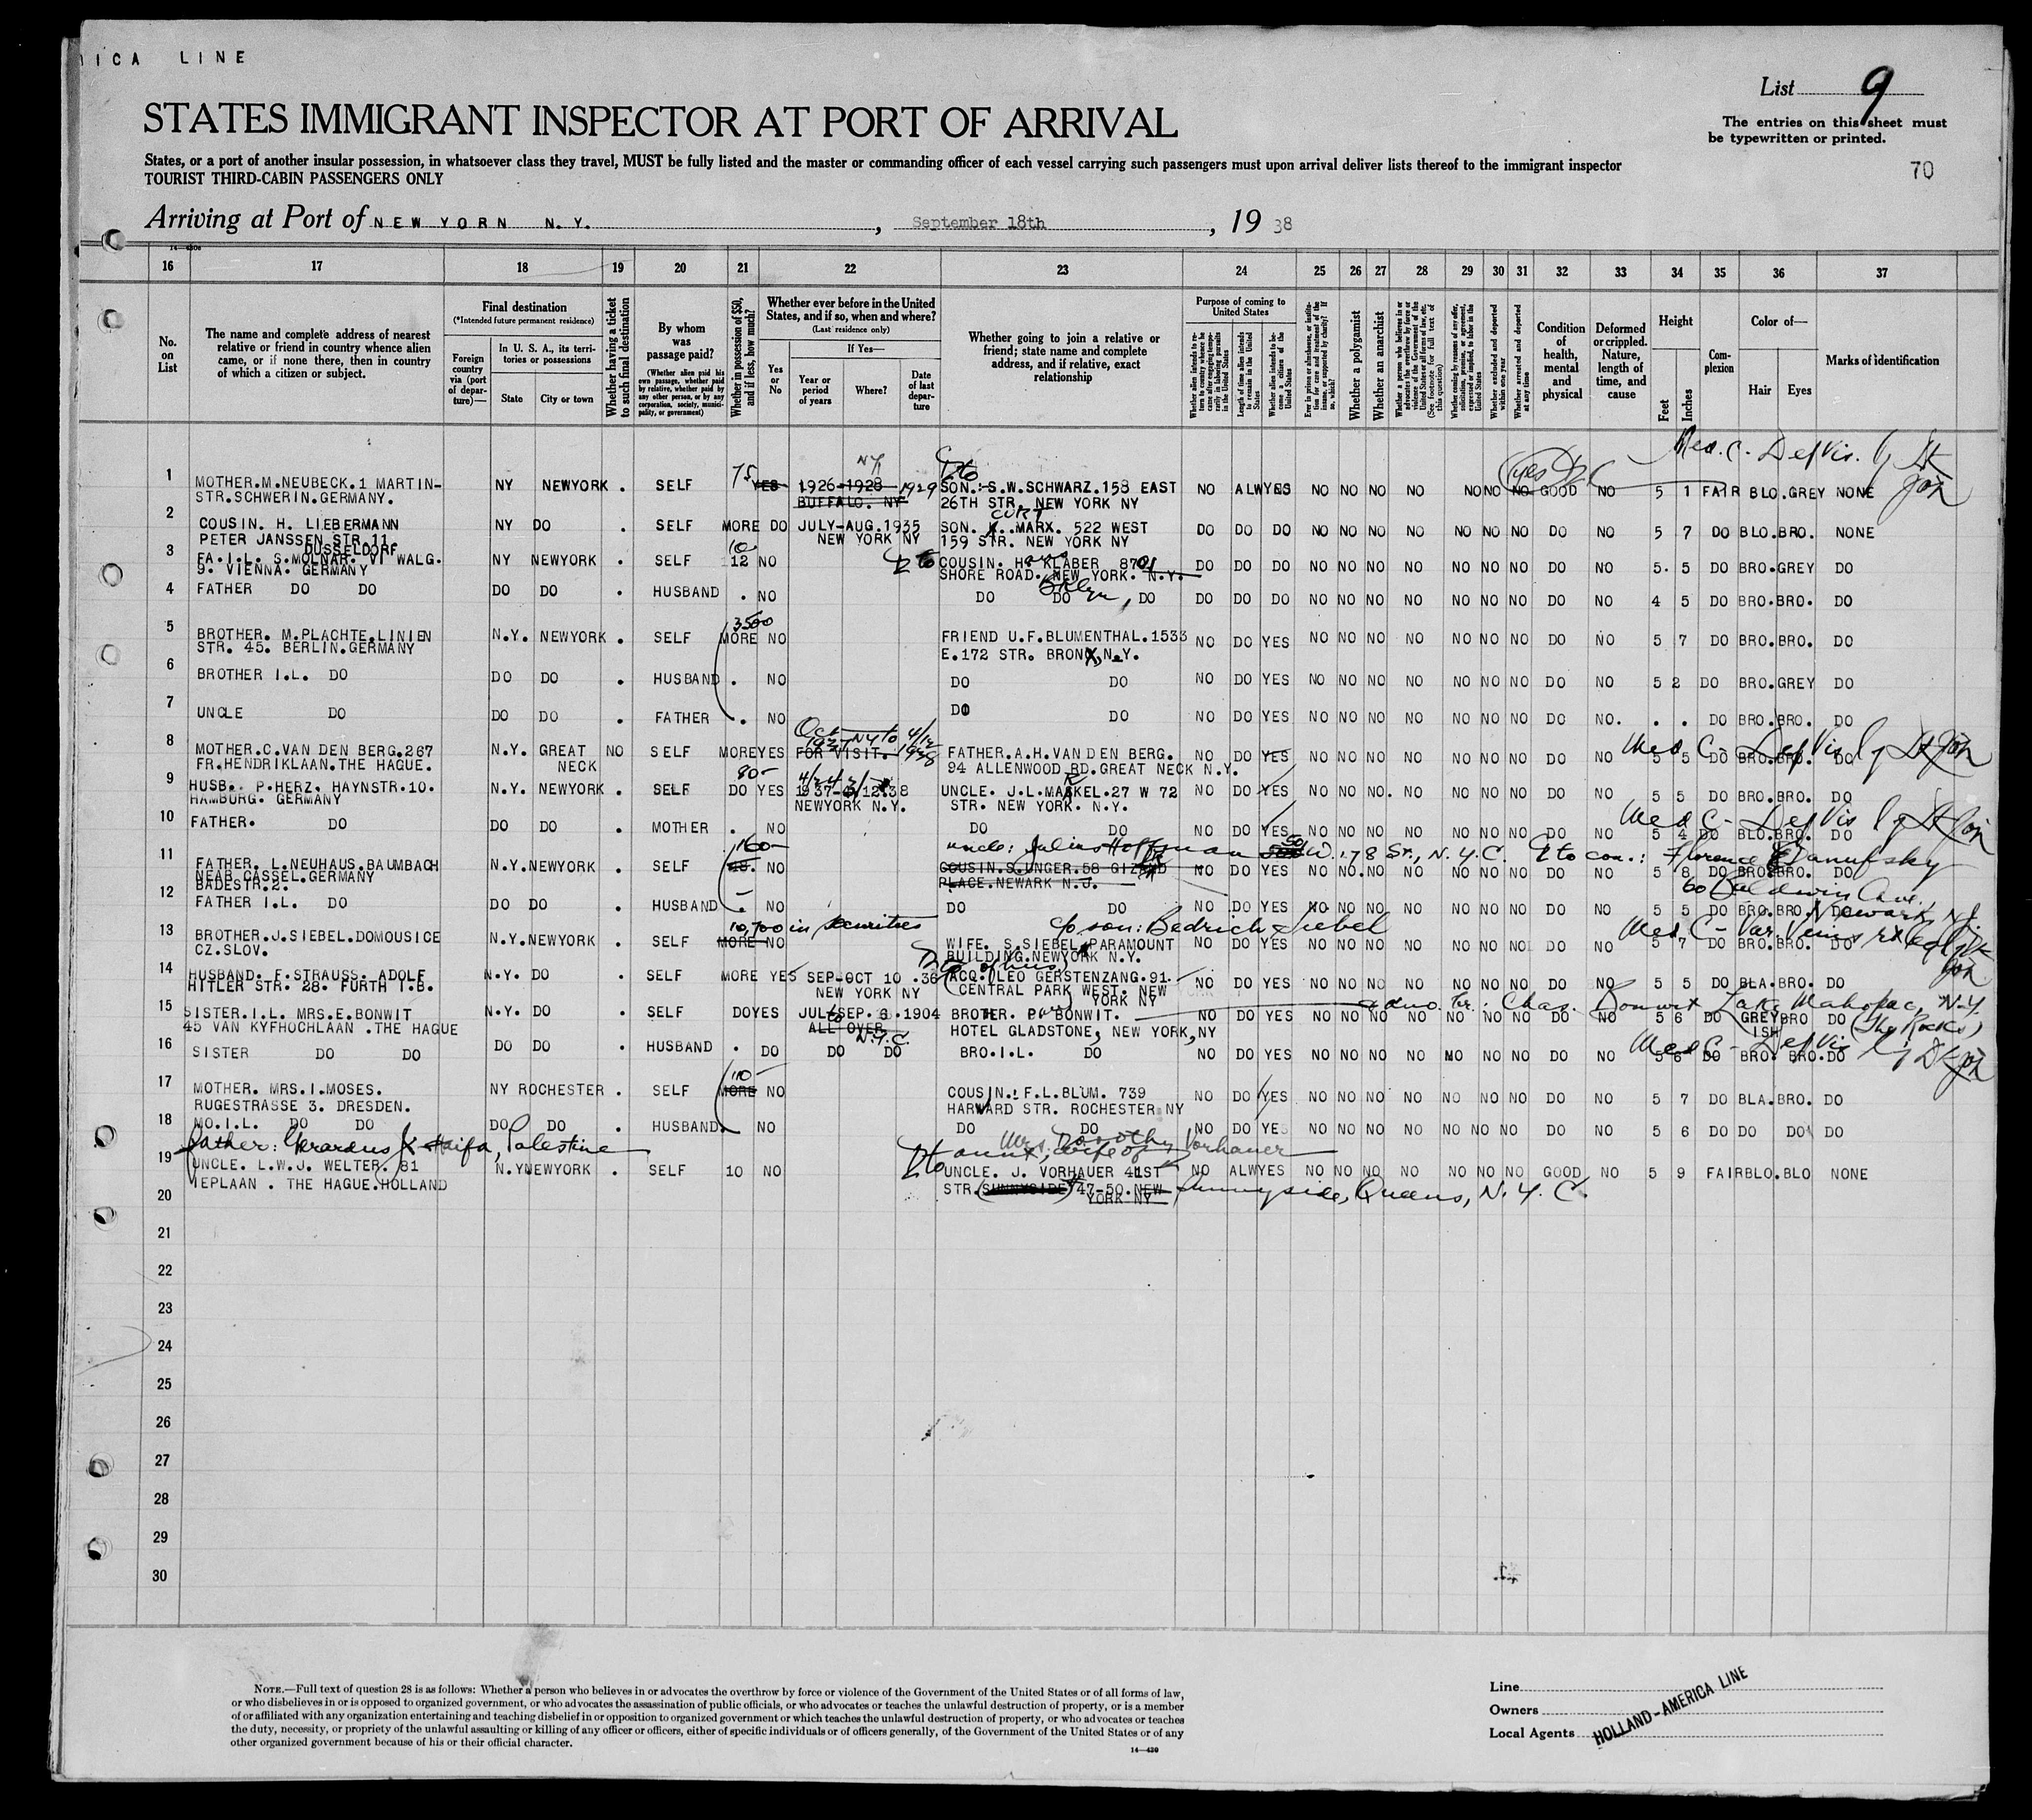 ICA LINE
List 9
STATES IMMIGRANT INSPECTOR AT PORT OF ARRIVAL
The entries on this sheet must
be typewritten or printed.
States, or a port of another insular possession, in whatsoever class they travel, MUST be fully listed and the master or commanding officer of each vessel carrying such passengers must upon arrival deliver lists thereof to the immigrant inspector
TOURIST THIRD-CABIN PASSENGERS ONLY
70
Arriving at Port of NEW YORN N.Y. , September 18th , 19 38
16 17 18 19 20 21 22 23 24 25 26 27 28 29 30 31 32 33 34 35 36 37
No. on List
The name and complete address of nearest relative or friend in country whence alien came, or if none there, then in country of which a citizen or subject.
Final destination
(*Intended future permanent residence)
Foreign country via (port of departure)—
In U. S. A., its territories or possessions
State
City or town
Whether having a ticket to such final destination
By whom was passage paid?
(Whether alien paid his own passage, whether paid by relative, whether paid by any other person, or by any corporation, society, municipality, or government)
Whether in possession of $50, and if less, how much?
Whether ever before in the United States, and if so, when and where?
(Last residence only)
Yes or No
If Yes—
Year or period of years
Where?
Date of last departure
Whether going to join a relative or friend; state name and complete address, and if relative, exact relationship
Purpose of coming to United States
Whether a polygamist
Whether an anarchist
Condition of health, mental and physical
Deformed or crippled. Nature, length of time, and cause
Height
Feet
Inches
Complexion
Color of—
Hair
Eyes
Marks of identification
Med. C. Def Vis.
1 MOTHER.M.NEUBECK.1 MARTIN- NY NEWYORK . SELF 75 YES 1926-1928 1929 SON.:-S.W.SCHWARZ.158 EAST NO ALWYES NO NO NO NO NO NO NO GOOD NO 5 1 FAIR BLO.GREY NONE
STR.SCHWERIN.GERMANY. BUFFALO. NY 26TH STR. NEW YORK NY
2 COUSIN. H. LIEBERMANN NY DO . SELF MORE DO JULY-AUG.1935 SON. MARX. 522 WEST DO DO DO NO NO NO NO NO NO NO DO NO 5 7 DO BLO.BRO. NONE
PETER JANSSEN STR.11. NEW YORK NY 159 STR. NEW YORK NY
DUSSELDORF
3 FA.I.L. S.MOLNAR. VI WALG. NY NEWYORK . SELF 12 NO COUSIN. KLABER 8701 DO DO DO NO NO NO NO NO NO NO DO NO 5. 5 DO BRO.GREY DO
9. VIENNA. GERMANY SHORE ROAD. NEW YORK. N.Y.
4 FATHER DO DO DO DO . HUSBAND . NO DO DO Bklyn, DO DO DO DO NO NO NO NO NO NO NO DO NO 4 5 DO BRO.BRO. DO
3500
5 BROTHER. M.PLACHTE.LINIEN N.Y. NEWYORK . SELF MORE NO FRIEND U.F.BLUMENTHAL.1533 NO DO YES NO NO NO NO NO NO NO DO NO 5 7 DO BRO.BRO. DO
STR. 45. BERLIN.GERMANY E.172 STR. BRONX,N.Y.
6 BROTHER I.L. DO DO DO . HUSBAND . NO DO DO NO DO YES NO NO NO NO NO NO NO DO NO 5 2 DO BRO.GREY DO
7 UNCLE DO DO DO . FATHER . NO DO DO NO DO YES NO NO NO NO NO NO NO DO NO. . . DO BRO.BRO. DO
8 MOTHER.C.VAN DEN BERG.267 N.Y. GREAT NO SELF MOREYES FOR VISIT. 1938 FATHER.A.H.VAN DEN BERG. NO DO YES NO NO NO NO NO NO NO DO NO 5 5 DO BRO.BRO. DO
FR.HENDRIKLAAN.THE HAGUE. NECK 94 ALLENWOOD RD.GREAT NECK N.Y.
Med C- Def Vis
80-
9 HUSB. P.HERZ. HAYNSTR.10. N.Y. NEWYORK . SELF DO YES UNCLE. J.L.MASKEL.27 W 72 NO DO YES NO NO NO. NO NO NO NO DO NO 5 5 DO BRO.BRO. DO
HAMBURG. GERMANY NEWYORK N.Y. STR. NEW YORK. N.Y.
Med C- Def Vis
10 FATHER. DO DO DO . MOTHER . NO DO DO NO DO YES NO NO NO NO NO NO NO DO NO 5 4 DO BLO.BRO. DO
160- uncle: Julius Hoffman W. 178 St., N.Y.C. to cou.: Florence
11 FATHER. L.NEUHAUS.BAUMBACH N.Y.NEWYORK . SELF NO COUSIN.S.UNGER.58 NO DO YES NO NO.NO NO NO.NO NO DO NO 5 8 DO BRO.BRO. DO
NEAR CASSEL.GERMANY PLACE.NEWARK N.J.
BADESTR.2. 60 Baldwin Ave.,
12 FATHER I.L. DO DO DO . HUSBAND . NO DO DO NO DO YES NO NO NO NO NO NO NO DO NO 5 5 DO BRO.BRO. DO Newark, N.J.
10,700 in securities c/o son: Bedrich Siebel
13 BROTHER.J.SIEBEL.DOMOUSICE N.Y.NEWYORK . SELF MORE NO WIFE. S.SIEBEL PARAMOUNT NO DO YES NO NO NO NO NO NO NO DO NO 5 7 DO BRO.BRO. DO
CZ.SLOV. BUILDING.NEWYORK N.Y.
Med C- Var. Veins
14 HUSBAND. F.STRAUSS. ADOLF N.Y. DO . SELF MORE YES SEP-OCT 10 .36 ACQ. LEO GERSTENZANG.91. NO DO YES NO NO NO NO NO NO NO DO NO 5 5 DO BLA.BRO. DO
HITLER STR. 28. FURTH I.B. NEW YORK NY CENTRAL PARK WEST. NEW
YORK NY
15 SISTER.I.L. MRS.E.BONWIT N.Y. DO . SELF DOYES SEP. 1904 BROTHER. BONWIT. NO DO YES NO NO NO NO NO NO NO DO NO 5 6 DO GREY BRO DO
45 VAN KYFHOCHLAAN .THE HAGUE ALL OVER HOTEL GLADSTONE, NEW YORK,NY ISH
Chas. Bonwit Lake Mahopac, N.Y.
(The Rocks)
N.Y.C.
16 SISTER DO DO DO DO . HUSBAND . DO DO DO BRO.I.L. DO NO DO YES NO NO NO NO NO NO NO DO NO 5 6 DO BRO. BRO.DO
Med C- Def Vis
110-
17 MOTHER. MRS.I.MOSES. NY ROCHESTER . SELF MORE NO COUSIN.: F.L.BLUM. 739 NO DO YES NO NO NO NO NO NO NO DO NO 5 7 DO BLA.BRO. DO
RUGESTRASSE 3. DRESDEN. HARWARD STR. ROCHESTER NY
18 MO.I.L. DO DO DO DO . HUSBAND. NO DO DO NO DO YES NO NO NO NO NO NO NO DO NO 5 6 DO DO DO DO
father: Gerardus Haifa, Palestine Mrs. Dorothy Vorhauer
to aunt, wife of
19 UNCLE. L.W.J. WELTER. 81 N.YNEWYORK . SELF 10 NO UNCLE. J. VORHAUER 41ST NO ALWYES NO NO NO NO NO NO NO GOOD NO 5 9 FAIRBLO.BLO NONE
IEPLAAN . THE HAGUE.HOLLAND STR.(SUNNYSIDE) 47-50.NEW Sunnyside, Queens, N.Y.C.
YORK NY
20
21
22
23
24
25
26
27
28
29
30
NOTE.—Full text of question 28 is as follows: Whether a person who believes in or advocates the overthrow by force or violence of the Government of the United States or of all forms of law,
or who disbelieves in or is opposed to organized government, or who advocates the assassination of public officials, or who advocates or teaches the unlawful destruction of property, or is a member
of or affiliated with any organization entertaining and teaching disbelief in or opposition to organized government or which teaches the unlawful destruction of property, or who advocates or teaches
the duty, necessity, or propriety of the unlawful assaulting or killing of any officer or officers, either of specific individuals or of officers generally, of the Government of the United States or of any
other organized government because of his or their official character.
14—430
Line
Owners
Local Agents
HOLLAND-AMERICA LINE